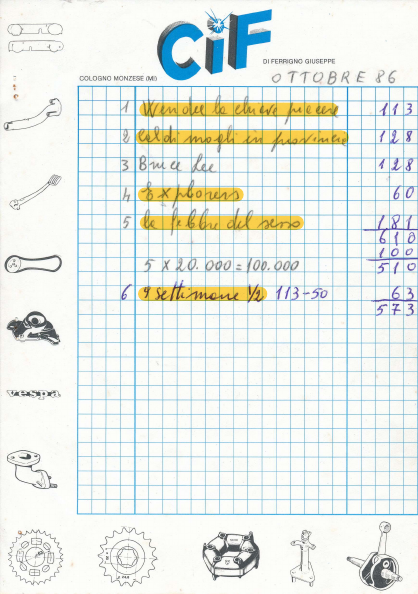 CiF
DI FERRIGNO GIUSEPPE
COLOGNO MONZESE (MI)
OTTOBRE 86
1 Wendee la chiave piacere 113
2 Caldi mogli in provincia 128
3 Bruce Lee 128
4 Explorers 60
5 la febbre del sesso 181
610
100
5 X 20.000 = 100.000 510
6 9 settimane 1/2 113-50 63
573
vespa